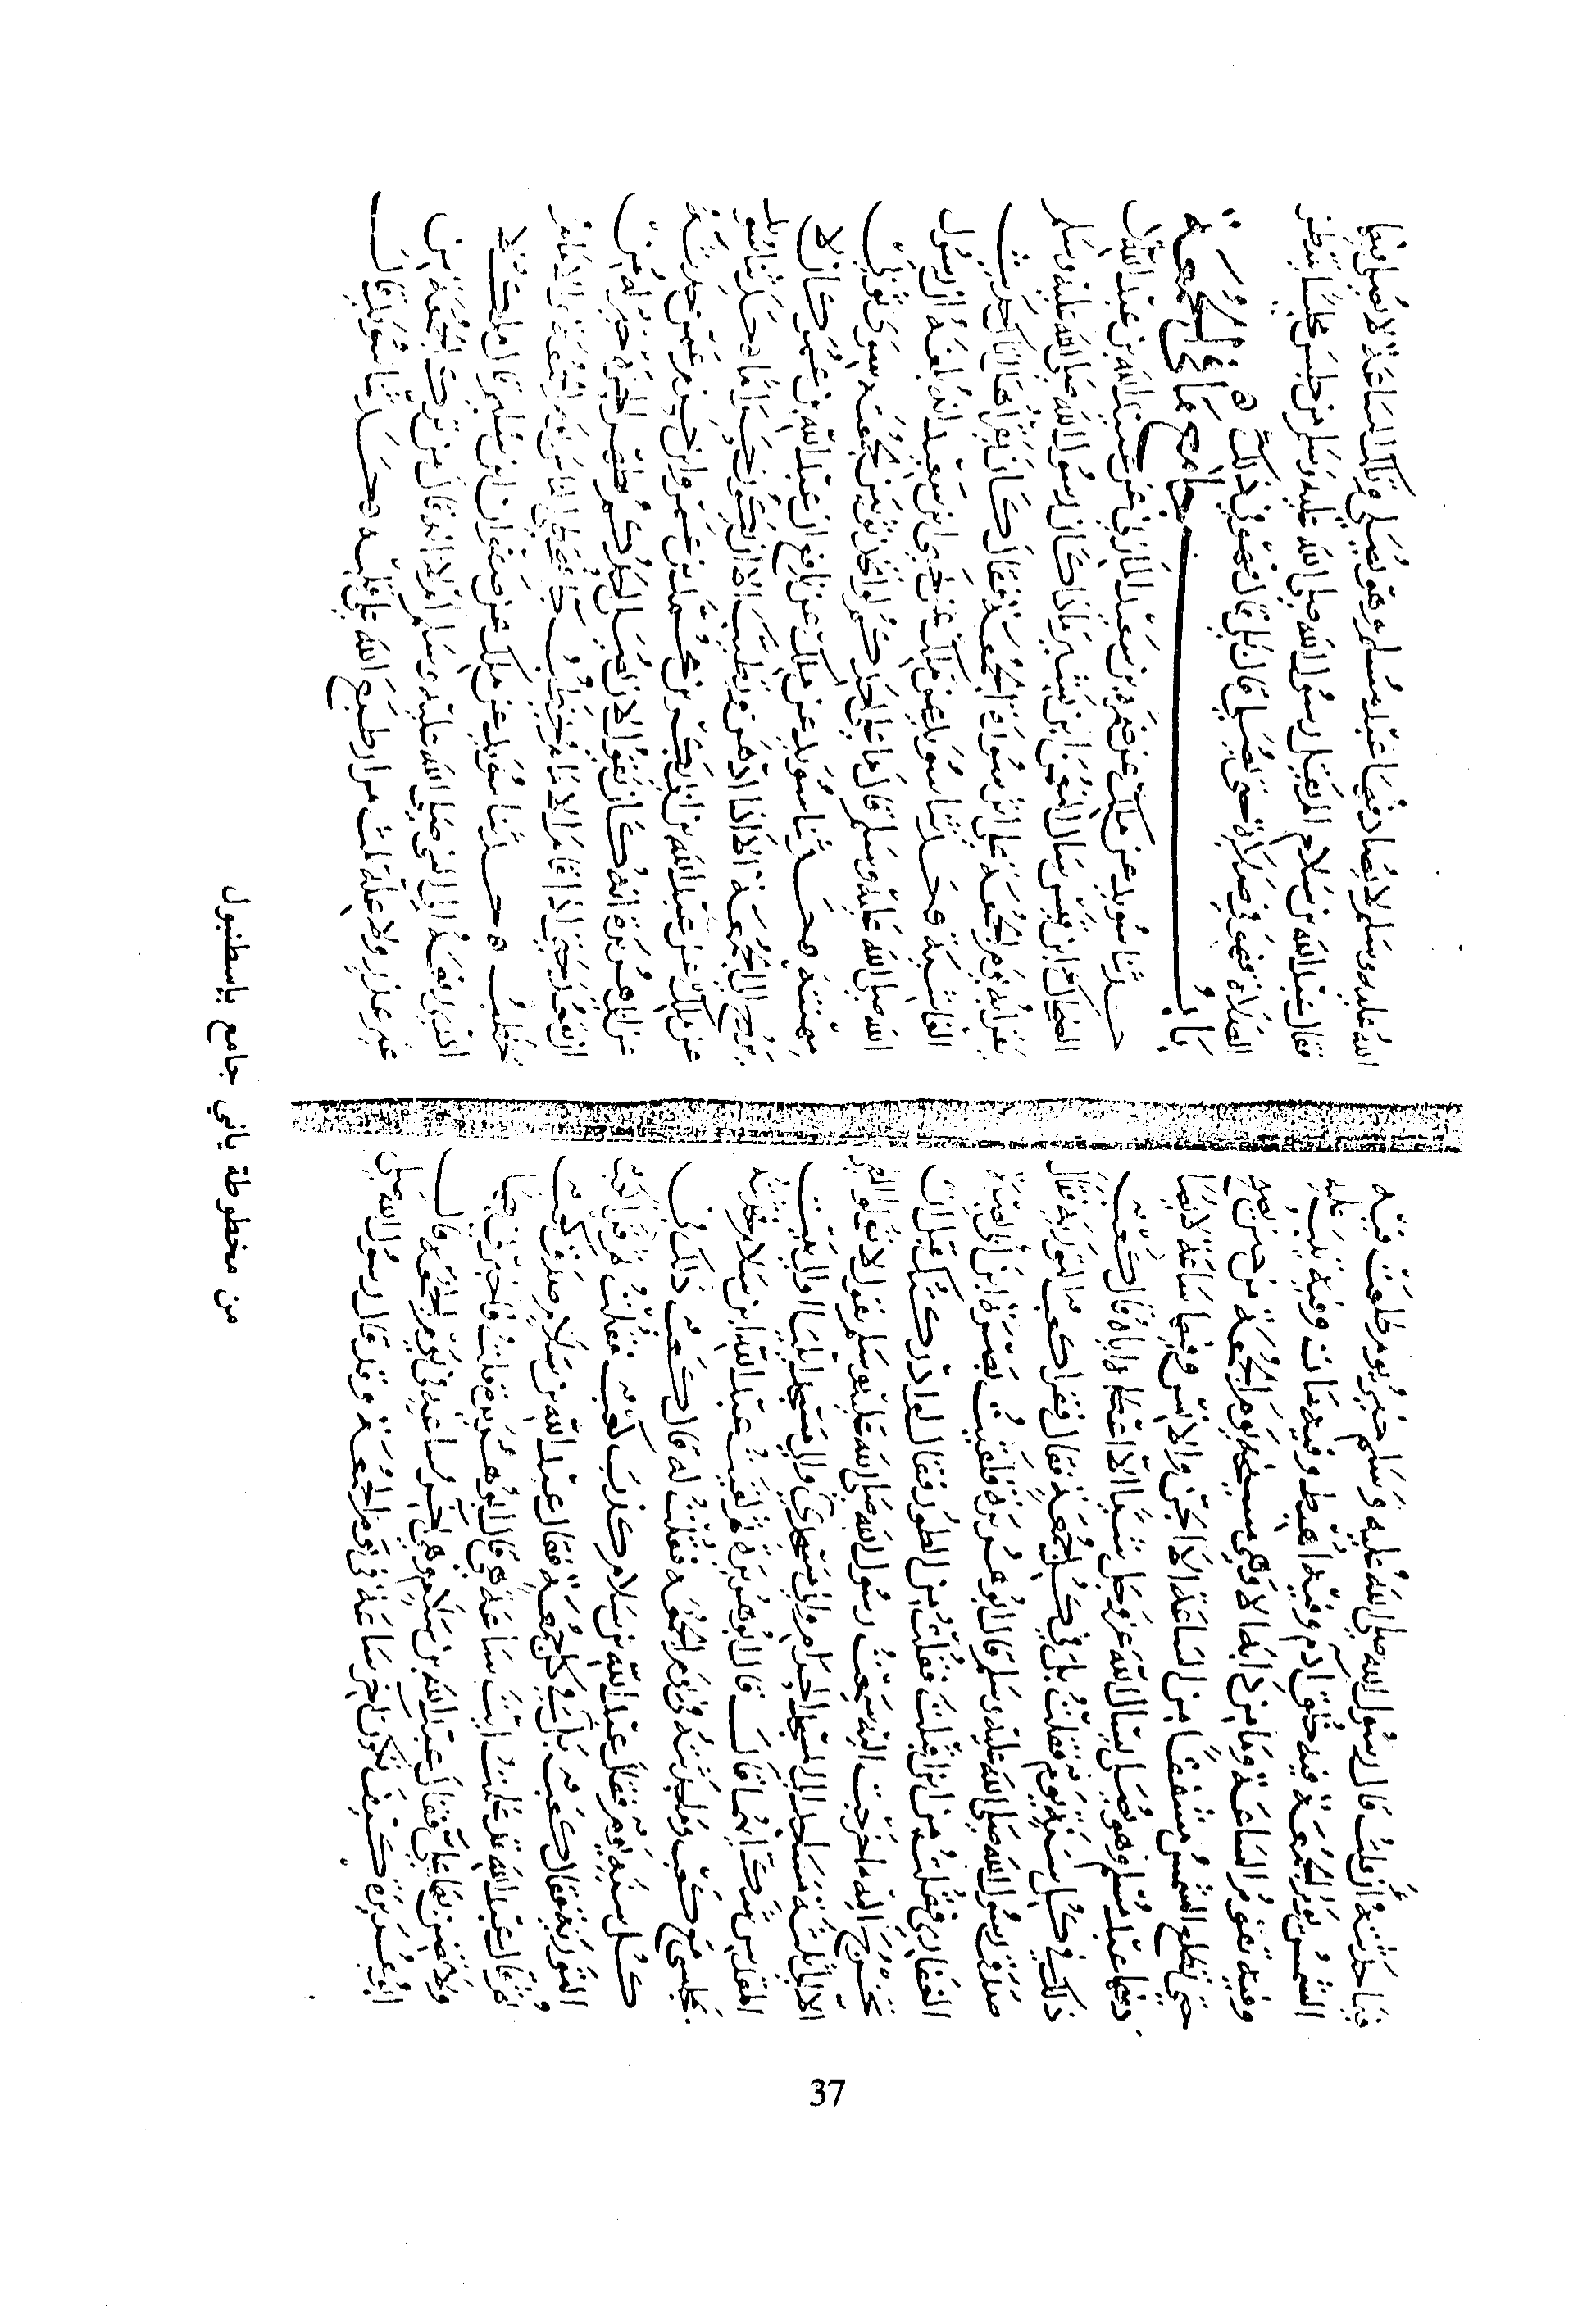 فيما حدثته أن قلت قال رسول الله صلى الله عليه وسلم خير يوم طلعت فيه
الشمس يوم الجمعة فيه خلق آدم وفيه اهبط وفيه مات وفيه تيب عليه
وفيه تقوم الساعة وما من دابة الا وهي مسيخة يوم الجمعة من حين تصبح
حتى تطلع الشمس شفقا من الساعة الا الجن والانس وفيها ساعة لا يصا
دفها عبد مسلم وهو يصلي يسأل الله عز وجل شيئا الا اعطاه اياه قال كعب
ذلك في كل سنة يوم فقلت بل في كل جمعة فقال فقرا كعب التورية فقال
صدق رسول الله صلى الله عليه وسلم قال ابو هريرة فلقيت بصرة ابن ابي بصرة
الغفاري فقال من اين اقبلت فقلت من الطور فقال لو ادركتك قبل ان
تخرج اليه ما خرجت اليه سمعت رسول الله صلى الله عليه وسلم يقول لا المطي
الا الى ثلثة مساجد الى المسجد الحرام والى مسجدي والى مسجد ايليا او الى بيت
المقدس شك ايهما قال قال ابو هريرة ثم لقيت عبد الله ابن سلام فحدثته
بمجلسي مع كعب وما حدثته في يوم الجمعة فقلت له قال كعب ذلك في
كل سنة يوم فقال عبد الله بن سلام كذب كعب فقلت ثم قرا كعب
التورية فقال كعب بل في كل جمعة فقال عبد الله بن سلام صدق كعب
ثم قال عبد الله قد علمت ايت ساعة هي قال ابو هريرة فقلت فاخبرني بها
ولا تضنن بها علي فقال عبد الله بن سلام هي آخر ساعة في يوم الجمعة قال
ابو هريرة كيف تكون اخر ساعة في يوم الجمعة وقد قال رسول الله صلى
الله عليه وسلم لا يصادفها عبد مسلم وهو يصلي وتلك الساعة لا يصلى فيها
فقال عبد الله بن سلام الم يقل رسول الله صلى الله عليه وسلم من جلس مجلسا ينتظر
الصلاة فهو في صلاة حتى يصلي قال بلى قال فهو ذلك
باب جامع ما في الجمعة
حدثنا سويد عن ملك عن ضمرة بن سعيد المازني عن عبيد الله بن عبد الله ان
الضحاك ابن قيس سال النعمن ابن بشير ماذا كان رسول الله صلى الله عليه وسلم
يقرا به يوم الجمعة على اثر سورة الجمعة فقال كان يقرا هل اتاك حديث
الغاشية حدثنا سويد عن ملك عن يحيى ابن سعيد انه بلغه ان رسول
الله صلى الله عليه وسلم قال ما على احدكم لو اتخذ ثوبين لجمعته سوى ثوبي
مهنته حدثنا سويد عن ملك عن نافع ان عبد الله بن عمر كان لا
يروح الى الجمعة الا ادهن وتطيب الا ان يكون حراما حدثنا سويد
عن ملك عن عبد الله بن ابي بكر بن محمد بن عمرو ابن حزم عمن حدثه
عن ابي هريرة انه كان يقول لان يصلي احدكم بظهر الحرة خير له من
ان يقعد حتى اذا قام الامام يخطب جا يتخطى الناس يوم الجمعة والامام
يخطب حدثنا سويد عن ملك عن صفوان ابن سليم قال ملك لا
ادري رفعه الى النبي صلى الله عليه وسلم ام لا انه قال من ترك الجمعة من
غير عذر ولا علة ثلث مرار طبع الله على قلبه حدثنا سويد قال
من مخطوطة ياني جامع بإسطنبول
37